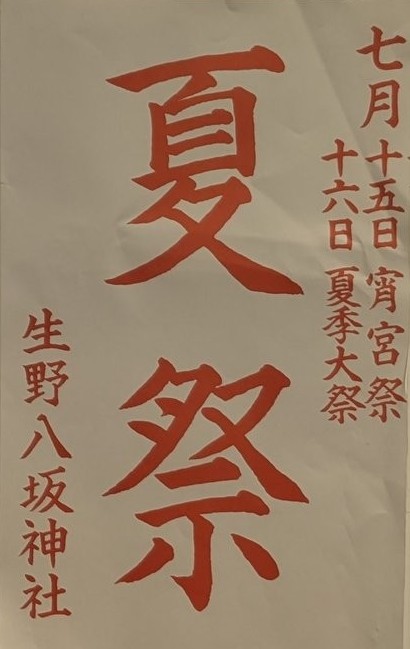 七月十五日 宵宮祭
十六日 夏季大祭
夏祭
生野八坂神社